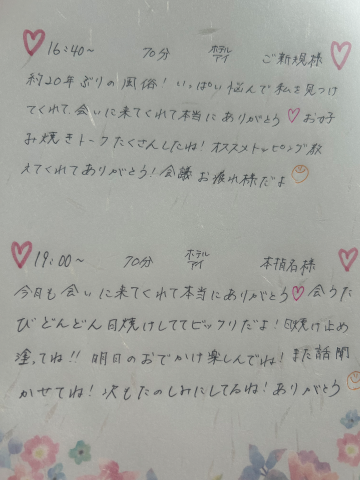 16:40~ 70分 ホテルアイ ご新規様
約20年ぶりの風俗！いっぱい悩んで私を見つけ
てくれて会いに来てくれて本当にありがとう♡お好
み焼きトークたくさんしたね！オススメトッピング教
えてくれてありがとう！会議お疲れ様だよ
19:00~ 70分 ホテルアイ 本指名様
今日も会いに来てくれて本当にありがとう♡会うた
びどんどん日焼けしててビックリだよ！日焼け止め
塗ってね!!明日のおでかけ楽しんでね！また話聞
かせてね！次もたのしみにしてるね！ありがとう